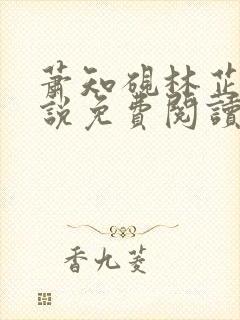 蕭知硯林芷
說免費閱讀
香九菱